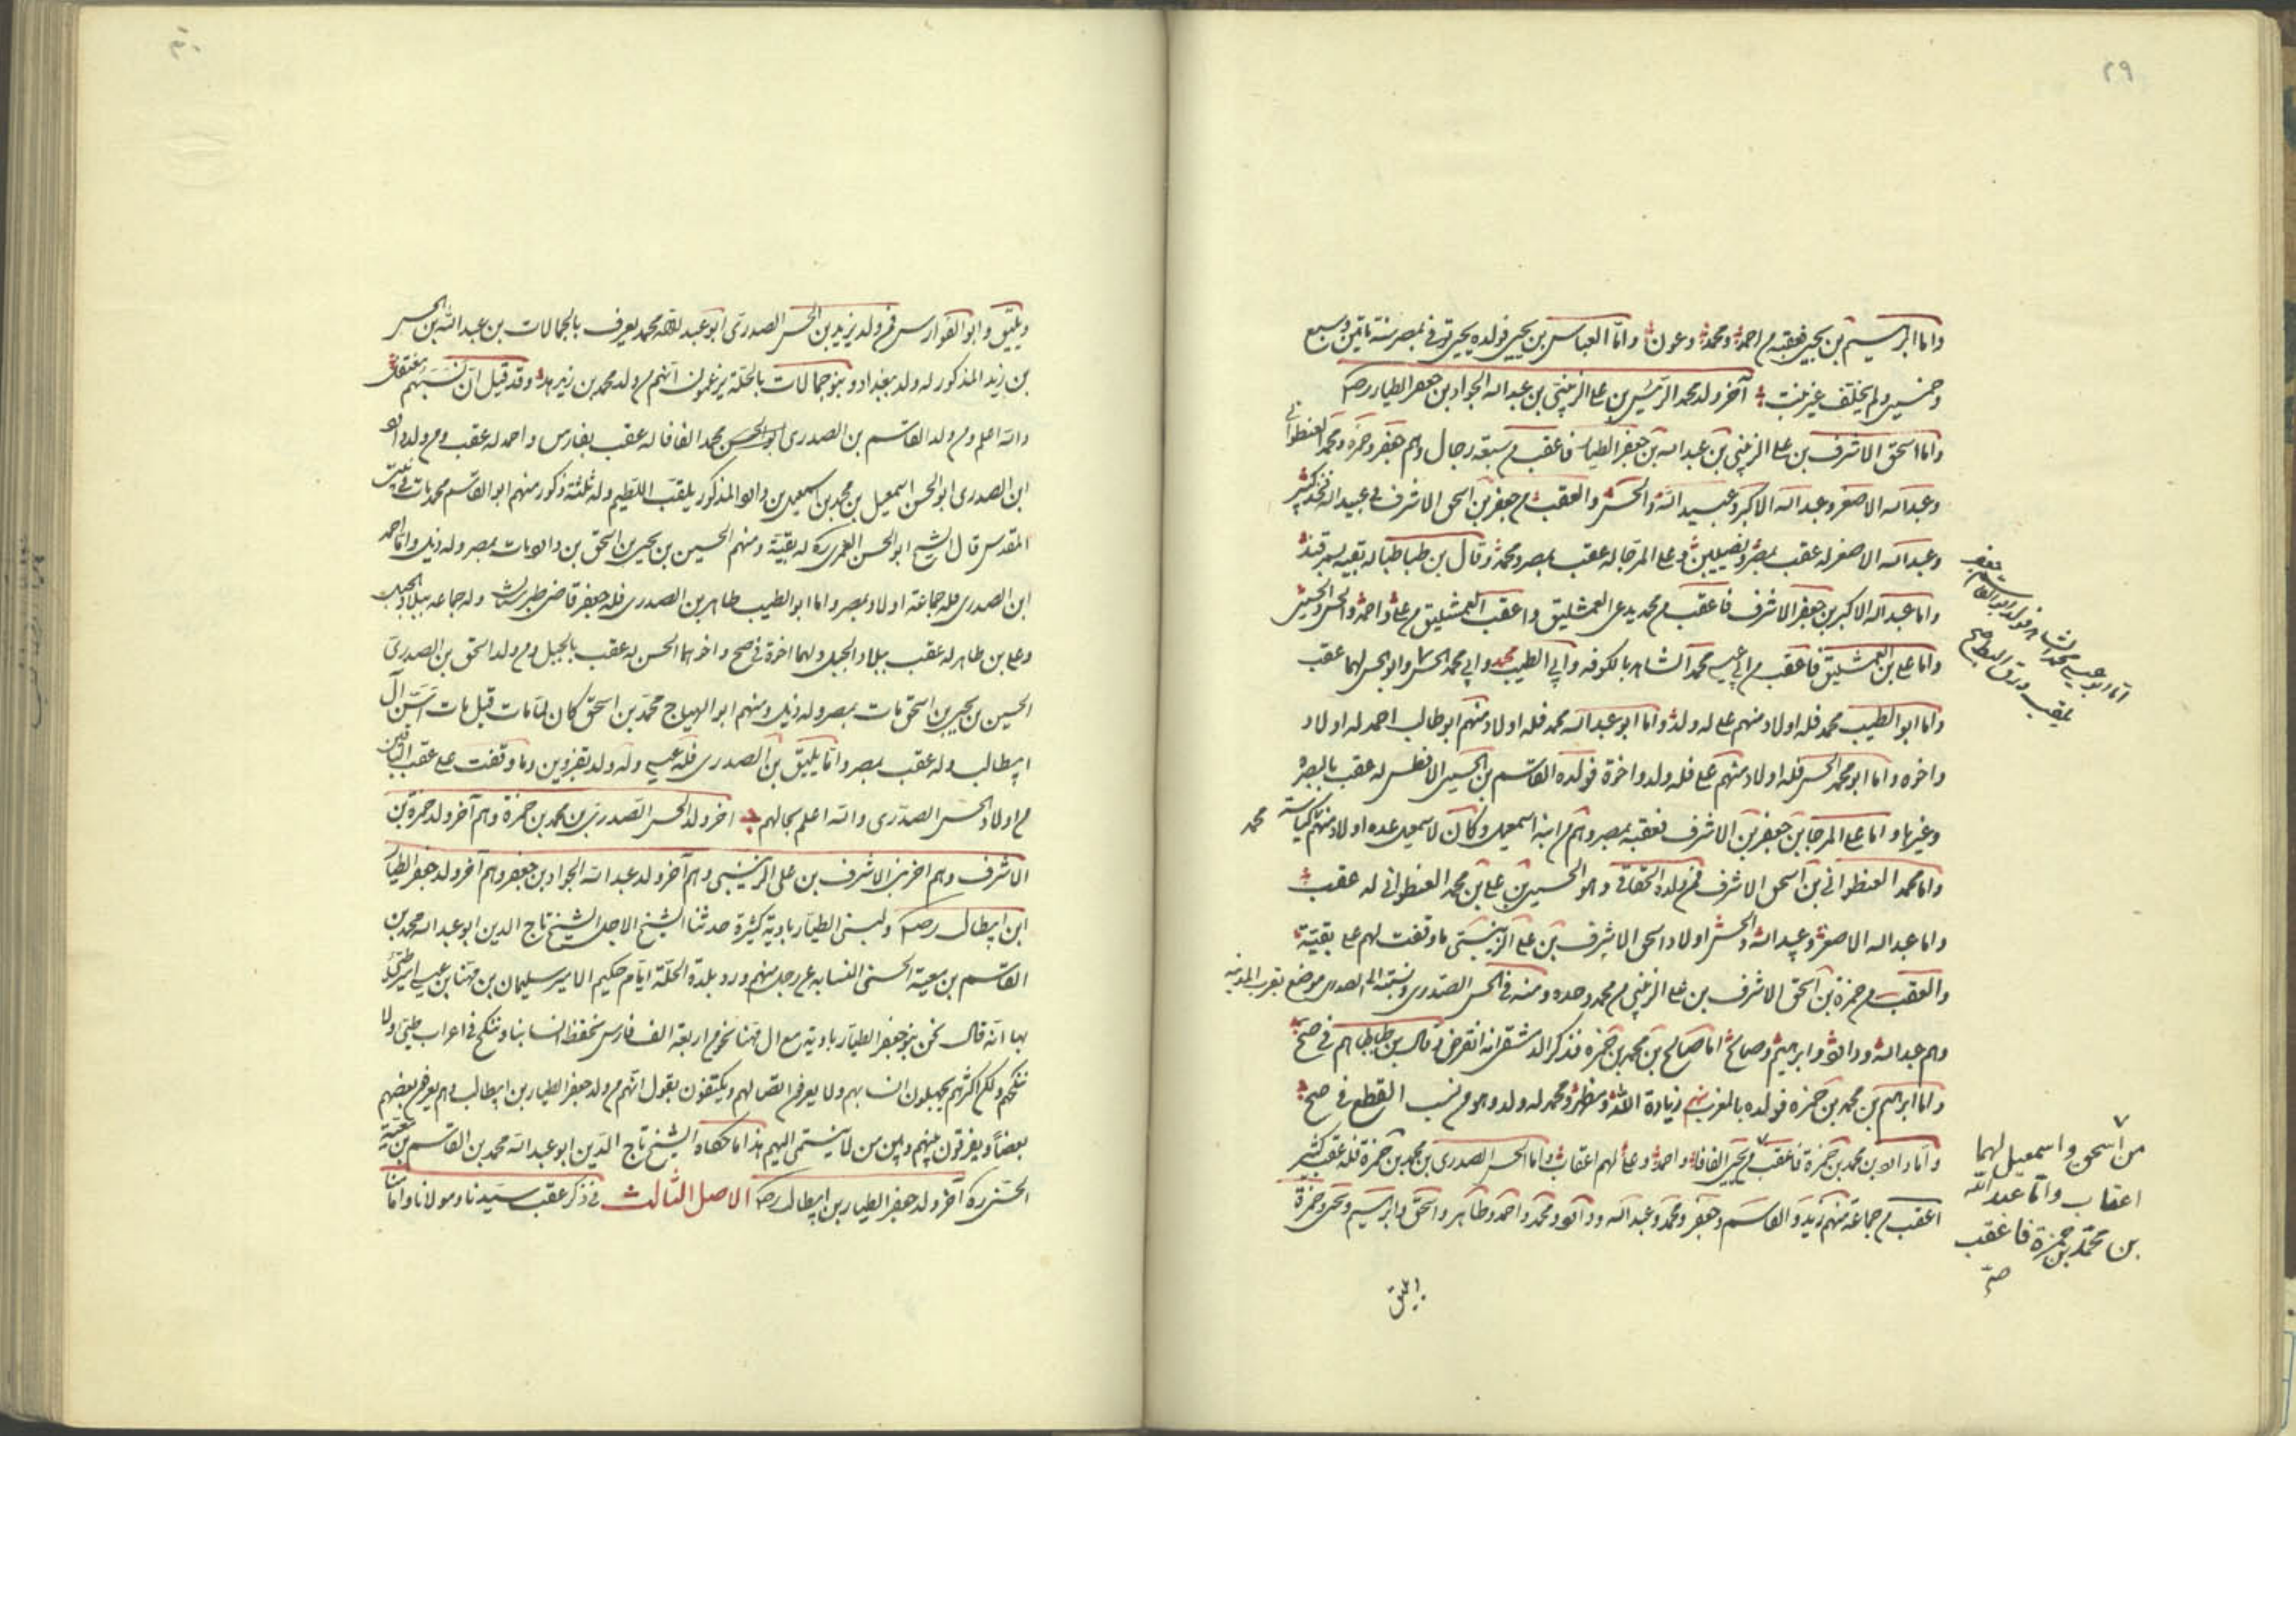 ٢٩
واما ابراهيم بن يحيى فعقبه من احمد ومحمد وعون واما العباس بن يحيى فولده يحيى توفى بمصر سنة مائتين وسبع
وخمسين ولم يخلف غير بنت آخر ولد محمد الرئيس بن على الزينبى بن عبد الله الجواد بن جعفر الطيار رضه
واما اسحق الاشرف بن على الزينبى بن عبد الله بن جعفر الطيار فاعقب من سبعة رجال وهم جعفر وحمزه ومحمد العنطوانى
وعبد الله الاصغر وعبد الله الاكبر وعبيد الله والحسن والعقب من جعفر بن اسحق الاشرف فى عبيد الله فخذ كثير
وعبد الله الاصغر له عقب بمصر ونصيبين وعلى المرجا له عقب بمصر ومحمد وقال بن طباطبا له بقيه بسمرقند
واما عبد الله الاكبر بن جعفر الاشرف فاعقب من محمد يدعى العمشليق واعقب العمشليق من على واحمد والحسن والحسين
واما على بن العمشليق فاعقب من ابى عيسى محمد الشاهر بالكوفه وابى الطيب محمد وابى محمد الحسن وابو الحسن لهما عقب
واما ابو الطيب محمد فله اولاد منهم على له ولد واما ابو عبد الله محمد فله اولاد منهم ابو طالب احمد له اولاد
واخوه واما ابو محمد الحسن فله اولاد منهم على فله ولد واخوة فولده القاسم بن الحسين الافطس له عقب بالبصره
وغيرها واما على المرجا بن جعفر بن الاشرف فعقبه بمصر وهم من ابنه اسمعيل وكان لاسمعيل عده اولاد منهم
محمد
واما محمد العنطوانى بن اسحق الاشرف فمن ولده وهو الحسين بن على بن محمد العنطوانى له عقب
واما عبد الله الاصغر وعبيد الله والحسن اولاد اسحق الاشرف بن على الزينبى ما وقفت لهم على بقية
والعقب من حمزة بن اسحق الاشرف بن على الزينبى من محمد وحده ومنه فى الحسن الصدرى ونسبته الى الصدرى موضع بقرب المدينه
وهم عبد الله وداود وابراهيم وصالح اما صالح بن محمد بن حمزه فذكر انه انقرض وقال بن طباطبا هم فى صح
واما ابراهيم بن محمد بن حمزه فولده بالمغرب زيادة الله ومظهر ومحمد له ولد وهو من نسب القطع فى صح
واما داود بن محمد بن حمزة فاعقب من يحيى الفافا واحمد وعلى لهم اعقاب واما الحسن الصدرى بن محمد بن حمزة فله عقب كثير
اعقب من جماعة منهم زيد والقاسم وجعفر ومحمد وعبد الله وداود ومحمد واحمد وطاهر واسحق وابراهيم ويحيى وحمزة
من اسحق واسمعيل لهما
اعقاب واما عبد الله
بن محمد بن حمزة فاعقب
صح
ويليق وابو الفوارس فمن ولد زيد بن الحسن الصدرى ابو عبد الله محمد يعرف بالجمالات بن عبد الله بن الحسن
بن زيد المذكور له ولد ببغداد وبنو جمالات بالحلة يزعمون انهم من ولد محمد بن زيد هذا وقد قيل ان نسبهم مفتعل
والله اعلم ومن ولد القاسم بن الصدرى ابو الحسن محمد الفافا له عقب بفارس واحمد له عقب ومن ولد داود
ابن الصدرى ابو الحسن اسمعيل بن محمد بن اسمعيل بن داود المذكور يلقب اللطيم وله ثلثة ذكور منهم ابو القاسم محمد مات فى بيت
المقدس قال الشيخ ابو الحسن العمرى ره له بقية ومنهم الحسين بن يحيى بن اسحق بن داود مات بمصر وله ذيل واما احمد
ابن الصدرى فله جماعة اولاد بمصر واما ابو الطيب طاهر بن الصدرى فله جعفر قاضى طبرستان وله جماعه ببلاد الجبل
وعلى بن طاهر له عقب ببلاد الجبل ولهما اخوة فى صح واخوهما الحسن له عقب بالجبل ومن ولد اسحق بن الصدرى
الحسين بن يحيى بن اسحق مات بمصر وله ذيل ومنهم ابو الهياج محمد بن اسحق كان لما مات قبل مات اسن آل
ابيطالب وله عقب بمصر واما يليق بن الصدرى فله عيسى وله ولد بقزوين وما وقفت على عقب الباقين
من اولاد الحسن الصدرى والله اعلم بحالهم آخر ولد الحسن الصدرى بن محمد بن حمزة وهم آخر ولد حمزة بن
الاشرف وهم اخر بنى الاشرف بن على الزينبى وهم آخر ولد عبد الله الجواد بن جعفر وهم آخر ولد جعفر الطيار
ابن ابيطالب رضه ولبنى الطيار بادية كثيرة حدثنا الشيخ الاجل الشيخ تاج الدين ابو عبد الله محمد بن
القاسم بن معية الحسنى النسابه عن رجل منهم ورد بلدة الحلة ايام حكيم الامير سليمان بن مهنا بن عيسى امير طى
بها انه قال نحن بنو جعفر الطيار بادية مع ال مهنا نحو من اربعة الف فارس نحفظ انسابنا وننكح فى اعراب طى ولا
ننكحهم ولكن اكثرهم يجهلون انسابهم ولا يعرف اتصالهم ويكتفون بقول انهم من ولد جعفر الطيار بن ابيطالب وهم يعرف بعضهم
بعضا ويفرقون بينهم وبين من لا ينتمى اليهم هذا ما حكاه الشيخ تاج الدين ابو عبد الله محمد بن القاسم بن معية
الحسنى ره آخر ولد جعفر الطيار بن ابيطالب رضه الاصل الثالث فى ذكر عقب سيدنا ومولانا وامامنا